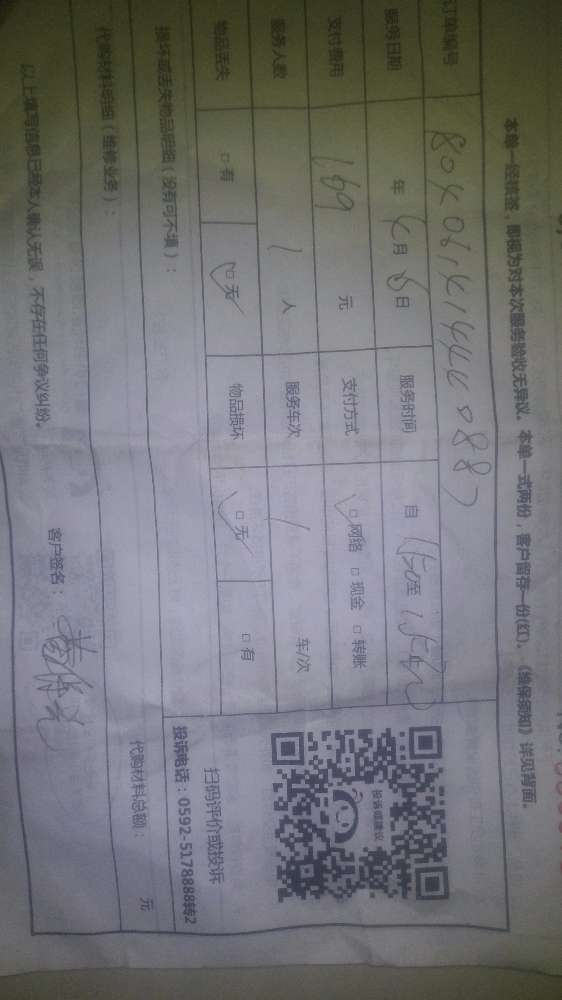 本单一经核签，即视为对本次服务验收无异议。本单一式两份，客户留存一份(红)。《维保须知》详见背面。
订单编号
服务日期 年 月 日 服务时间 自 至 止
支付费用 169 元 支付方式 □网络 □现金 □转账
服务人数 1 人 服务车次 1 车/次
物品丢失 □有 □无 物品损坏 □无 □有
损坏或丢失物品明细（没有可不填）：
扫码评价或投诉
投诉电话：0592-5178888转2
投诉或建议
代购材料明细（维修业务）：
代购材料总额： 元
以上填写信息已经本人确认无误，不存在任何争议纠纷。 客户签名：